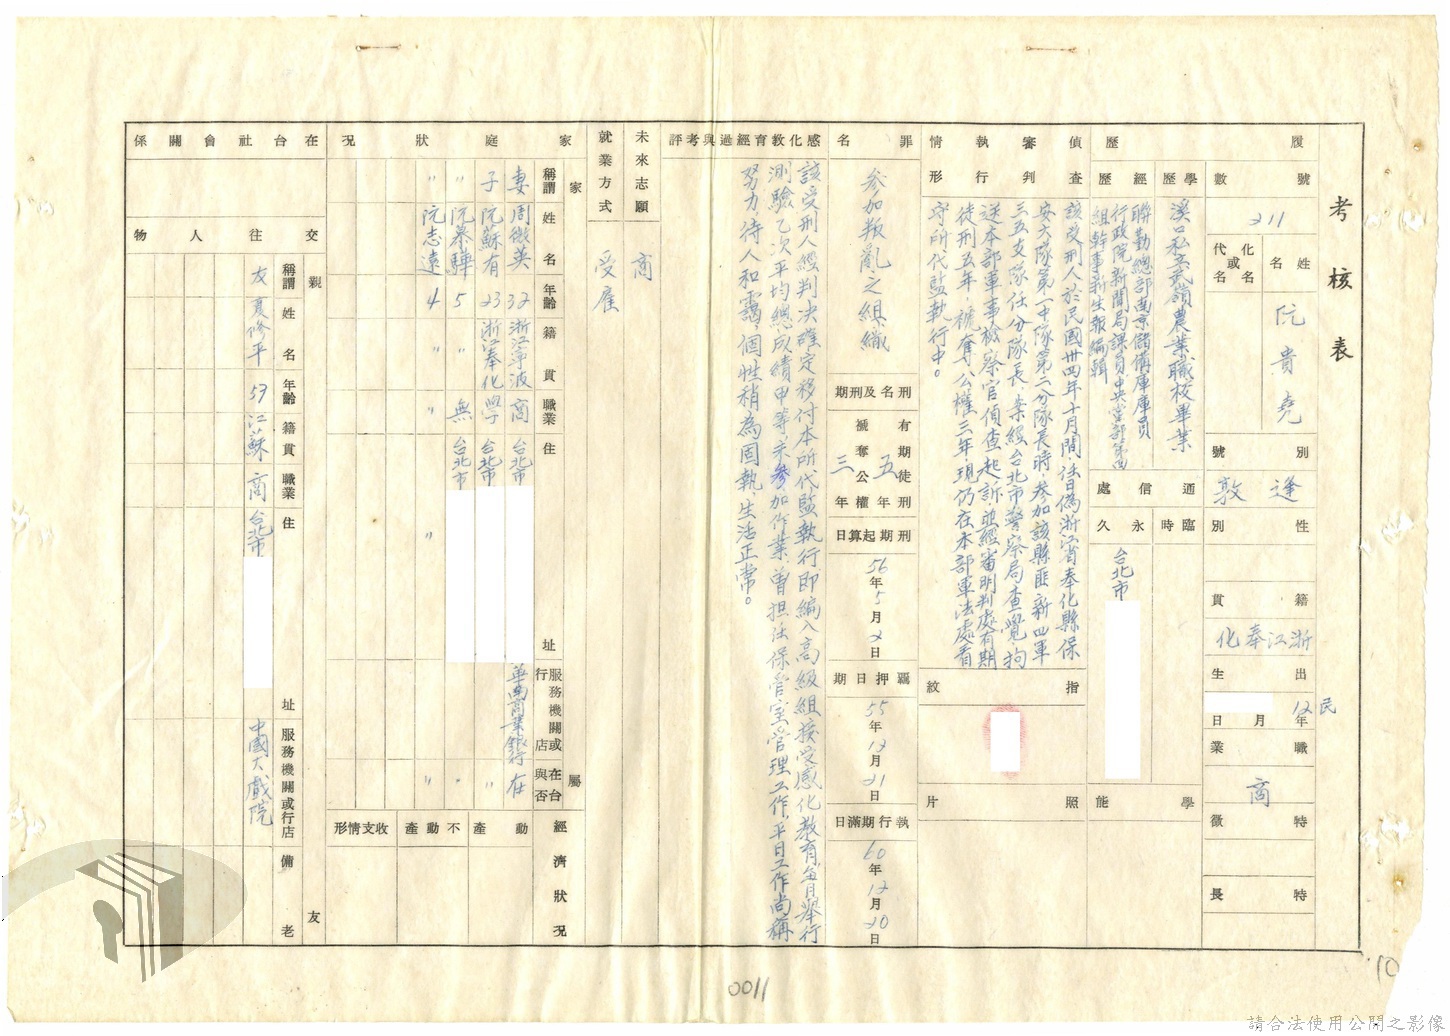 考核表
履歷
號數
211
姓名
阮貴堯
化名或代名
別號
逢敦
性別
籍貫
浙江奉化
出生
民12年月日
職業
商
特徵
特長
學歷
溪口私立武嶺農業職校畢業
經歷
聯勤總部南京儲備庫庫員
行政院新聞局課員中央黨部第四
組幹事新生報編輯
通信處
臨時
永久
台北市
學能
偵查審判執行情形
該受刑人於民國卅四年十月間任日偽浙江省奉化縣保
安大隊第一中隊第二分隊長時，參加該縣匪新四軍
三五支隊任分隊長，業經台北市警察局查覺，拘
送本部軍事檢察官偵查起訴並經審明判處有期
徒刑五年，褫奪公權三年，現仍在本部軍法處看
守所代監執行中。
指紋
照片
罪名
參加叛亂之組織
刑名及刑期
有期徒刑五年
褫奪公權三年
刑期起算日
56年5月2日
羈押日期
55年12月21日
執行期滿日
60年12月20日
感化教育經過與考評
該受刑人經判決確定移付本所代監執行即編入高級組接受感化教育每月舉行
測驗乙次平均總成績甲等，未參加作業，曾担任保管室管理工作，平日工作尚稱
努力，待人和靄，個性稍為固執，生活正常。
未來志願
商
就業方式
受雇
家庭狀況
家屬
稱謂 姓名 年齡 籍貫 職業 住址 服務機關或行店 在台與否
妻 周微英 32 浙江寧波 商 台北市 華南商業銀行 在
子 阮蘇有 23 浙江奉化 學 台北市 〃
〃 阮慕驊 5 〃 無 台北市 〃
〃 阮志遠 4 〃 〃 〃 〃
經濟狀況
動產
不動產
收支情形
在台社會關係
交往人物
親友
稱謂 姓名 年齡 籍貫 職業 住址 服務機關或行店 備老
友 夏修平 59 江蘇 商 台北市 中國大戲院
10
0011
請合法使用公開之影像